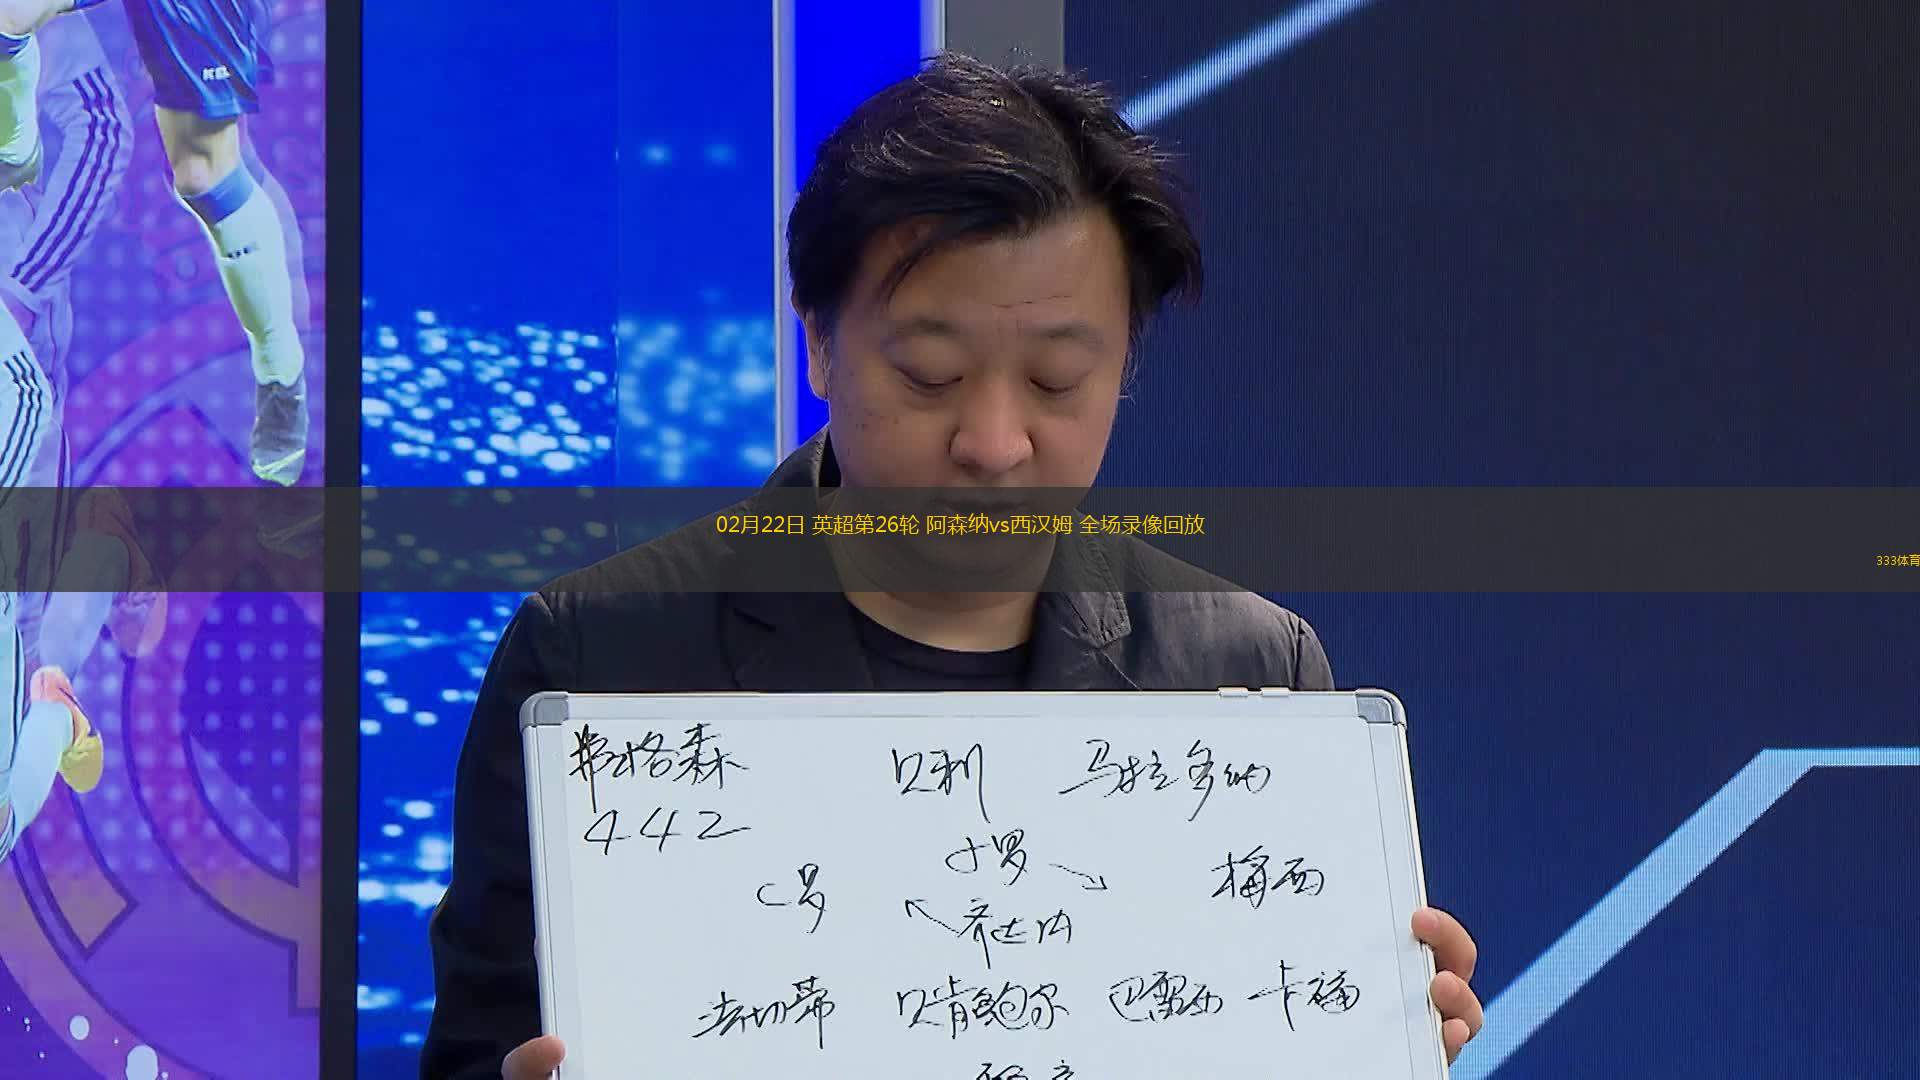 02月22日 英超第26轮 阿森纳vs西汉姆 全场录像回放
333体育
弗格森 贝利 马拉多纳
442
C罗 小罗 梅西
齐达内
法切蒂 贝肯鲍尔 巴雷西 卡福